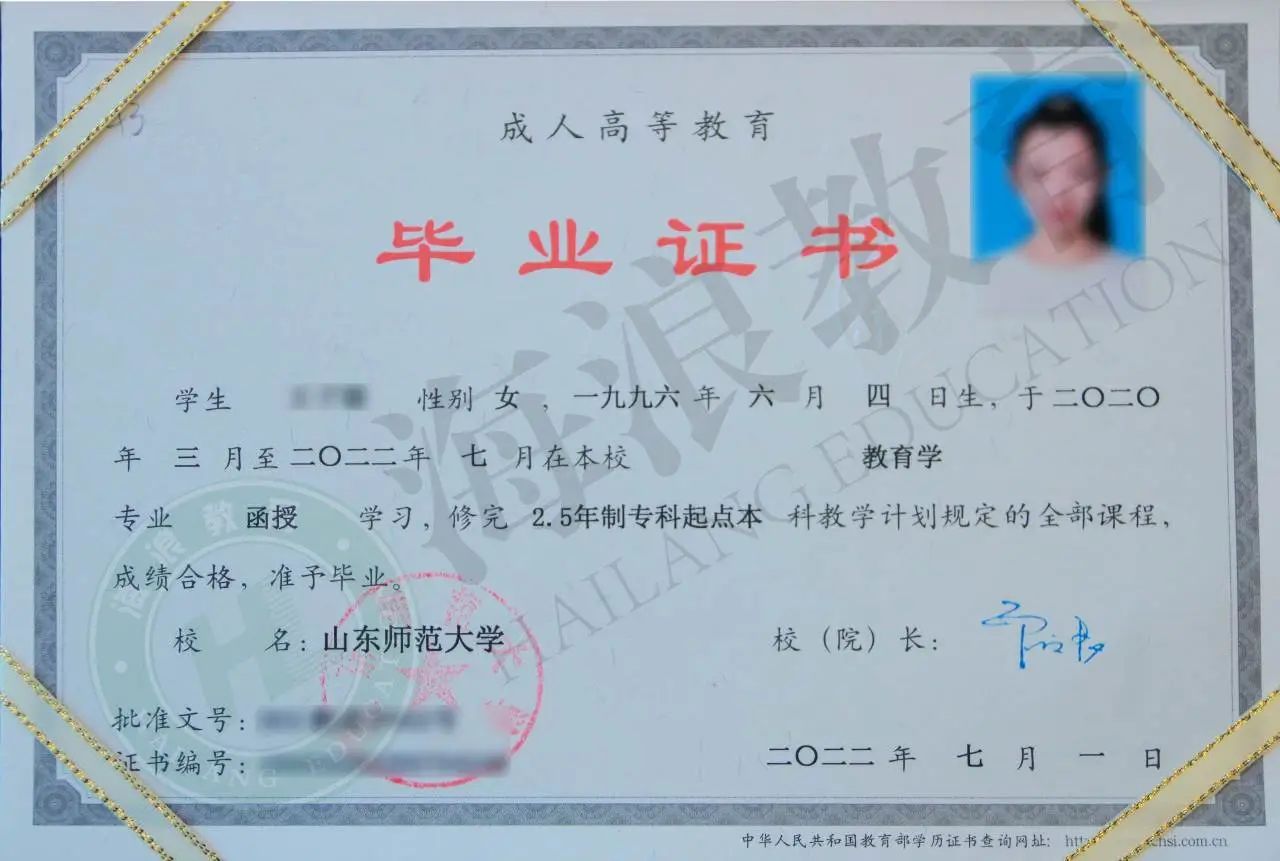 成人高等教育
毕业证书
学生 性别 女 , 一九九六 年 六 月 四 日生, 于 二〇二〇
年 三 月至 二〇二二 年 七 月在本校 教育学
专业 函授 学习, 修完 2.5年制专科起点本 科教学计划规定的全部课程,
成绩合格, 准予毕业。
校 名: 山东师范大学
校（院）长:
批准文号:
证书编号:
二〇二二 年 七 月 一 日
中华人民共和国教育部学历证书查询网址:
海浪教育
HAILANG EDUCATION